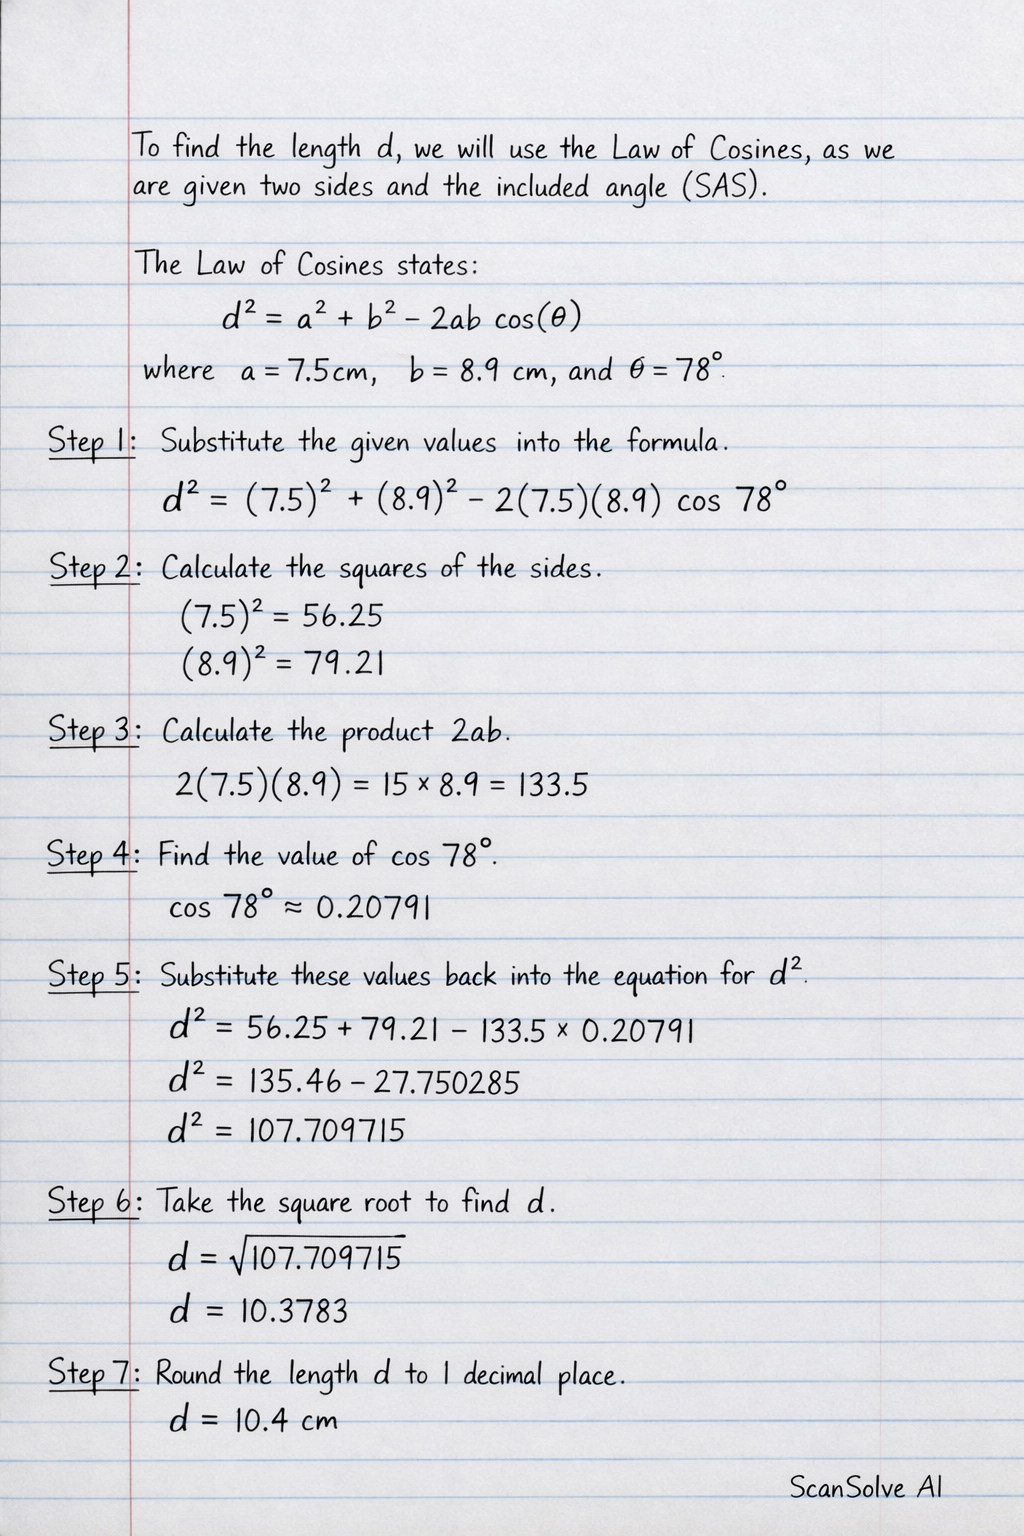 To find the length d, we will use the Law of Cosines, as we
are given two sides and the included angle (SAS).
The Law of Cosines states:
d² = a² + b² − 2ab cos(θ)
where a = 7.5cm, b = 8.9 cm, and θ = 78°.
Step 1: Substitute the given values into the formula.
d² = (7.5)² + (8.9)² − 2(7.5)(8.9) cos 78°
Step 2: Calculate the squares of the sides.
(7.5)² = 56.25
(8.9)² = 79.21
Step 3: Calculate the product 2ab.
2(7.5)(8.9) = 15 × 8.9 = 133.5
Step 4: Find the value of cos 78°.
cos 78° ≈ 0.20791
Step 5: Substitute these values back into the equation for d².
d² = 56.25 + 79.21 − 133.5 × 0.20791
d² = 135.46 − 27.750285
d² = 107.709715
Step 6: Take the square root to find d.
d = √107.709715
d = 10.3783
Step 7: Round the length d to 1 decimal place.
d = 10.4 cm
ScanSolve AI